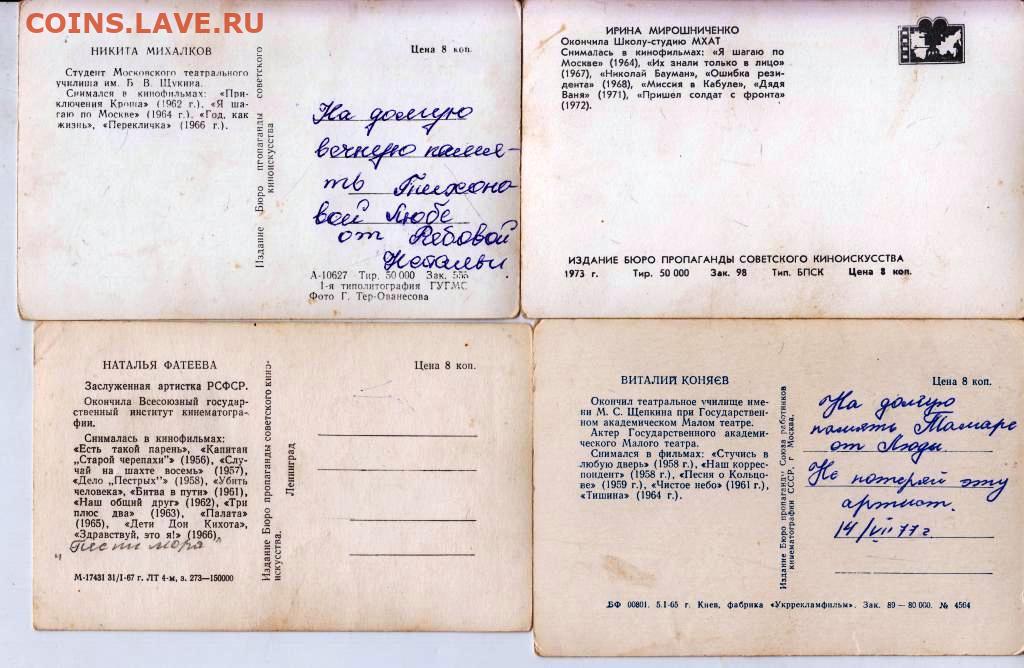 COINS.LAVE.RU
НИКИТА МИХАЛКОВ
Цена 8 коп.
Студент Московского театрального
училища им. Б. В. Щукина.
Снимался в кинофильмах: «При-
ключения Кроша» (1962 г.). «Я ша-
гаю по Москве» (1964 г.). «Год, как
жизнь», «Перекличка» (1966 г.).
Издание Бюро пропаганды советского
киноискусства
На долгую
вечную памя-
ть Тихоно
вой Любе
от Рябовой
Натальи
А-10627 Тир. 50 000 Зак. 555
1-я типолитография ГУГМС
Фото Г. Тер-Ованесова
ИРИНА МИРОШНИЧЕНКО
Окончила Школу-студию МХАТ
Снималась в кинофильмах: «Я шагаю по
Москве» (1964), «Их знали только в лицо»
(1967), «Николай Бауман», «Ошибка рези-
дента» (1968), «Миссия в Кабуле», «Дядя
Ваня» (1971), «Пришел солдат с фронта»
(1972).
ИЗДАНИЕ БЮРО ПРОПАГАНДЫ СОВЕТСКОГО КИНОИСКУССТВА
1973 г. Тир. 50 000 Зак. 98 Тип. БПСК Цена 8 коп.
НАТАЛЬЯ ФАТЕЕВА
Цена 8 коп.
Заслуженная артистка РСФСР.
Окончила Всесоюзный государ-
ственный институт кинематогра-
фии.
Снималась в кинофильмах:
«Есть такой парень», «Капитан
„Старой черепахи"» (1956), «Слу-
чай на шахте восемь» (1957),
«Дело „Пестрых"» (1958), «Убить
человека», «Битва в пути» (1961),
«Наш общий друг» (1962), «Три
плюс два» (1963), «Палата»
(1965), «Дети Дон Кихота»,
«Здравствуй, это я!» (1966),
"Песни моря"
Издание Бюро пропаганды советского кино-
искусства.
Ленинград
М-17431 31/I-67 г. ЛТ 4-м, з. 273—150000
ВИТАЛИЙ КОНЯЕВ
Цена 8 коп.
Окончил театральное училище име-
ни М. С. Щепкина при Государствен-
ном академическом Малом театре.
Актер Государственного академи-
ческого Малого театра.
Снимался в фильмах: «Стучись в
любую дверь» (1958 г.), «Наш коррес-
пондент» (1958 г.), «Песня о Кольцо-
ве» (1959 г.), «Чистое небо» (1961 г.),
«Тишина» (1964 г.).
Издание Бюро пропаганды Союза работников
кинематографии СССР, г Москва.
На долгую
память Тамаре
от Люды
Не потеряй эту
артист.
14/VII 77 г.
БФ 00801. 5.I-65 г. Киев, фабрика «Укррекламфильм». Зак. 89—80 000. № 4564